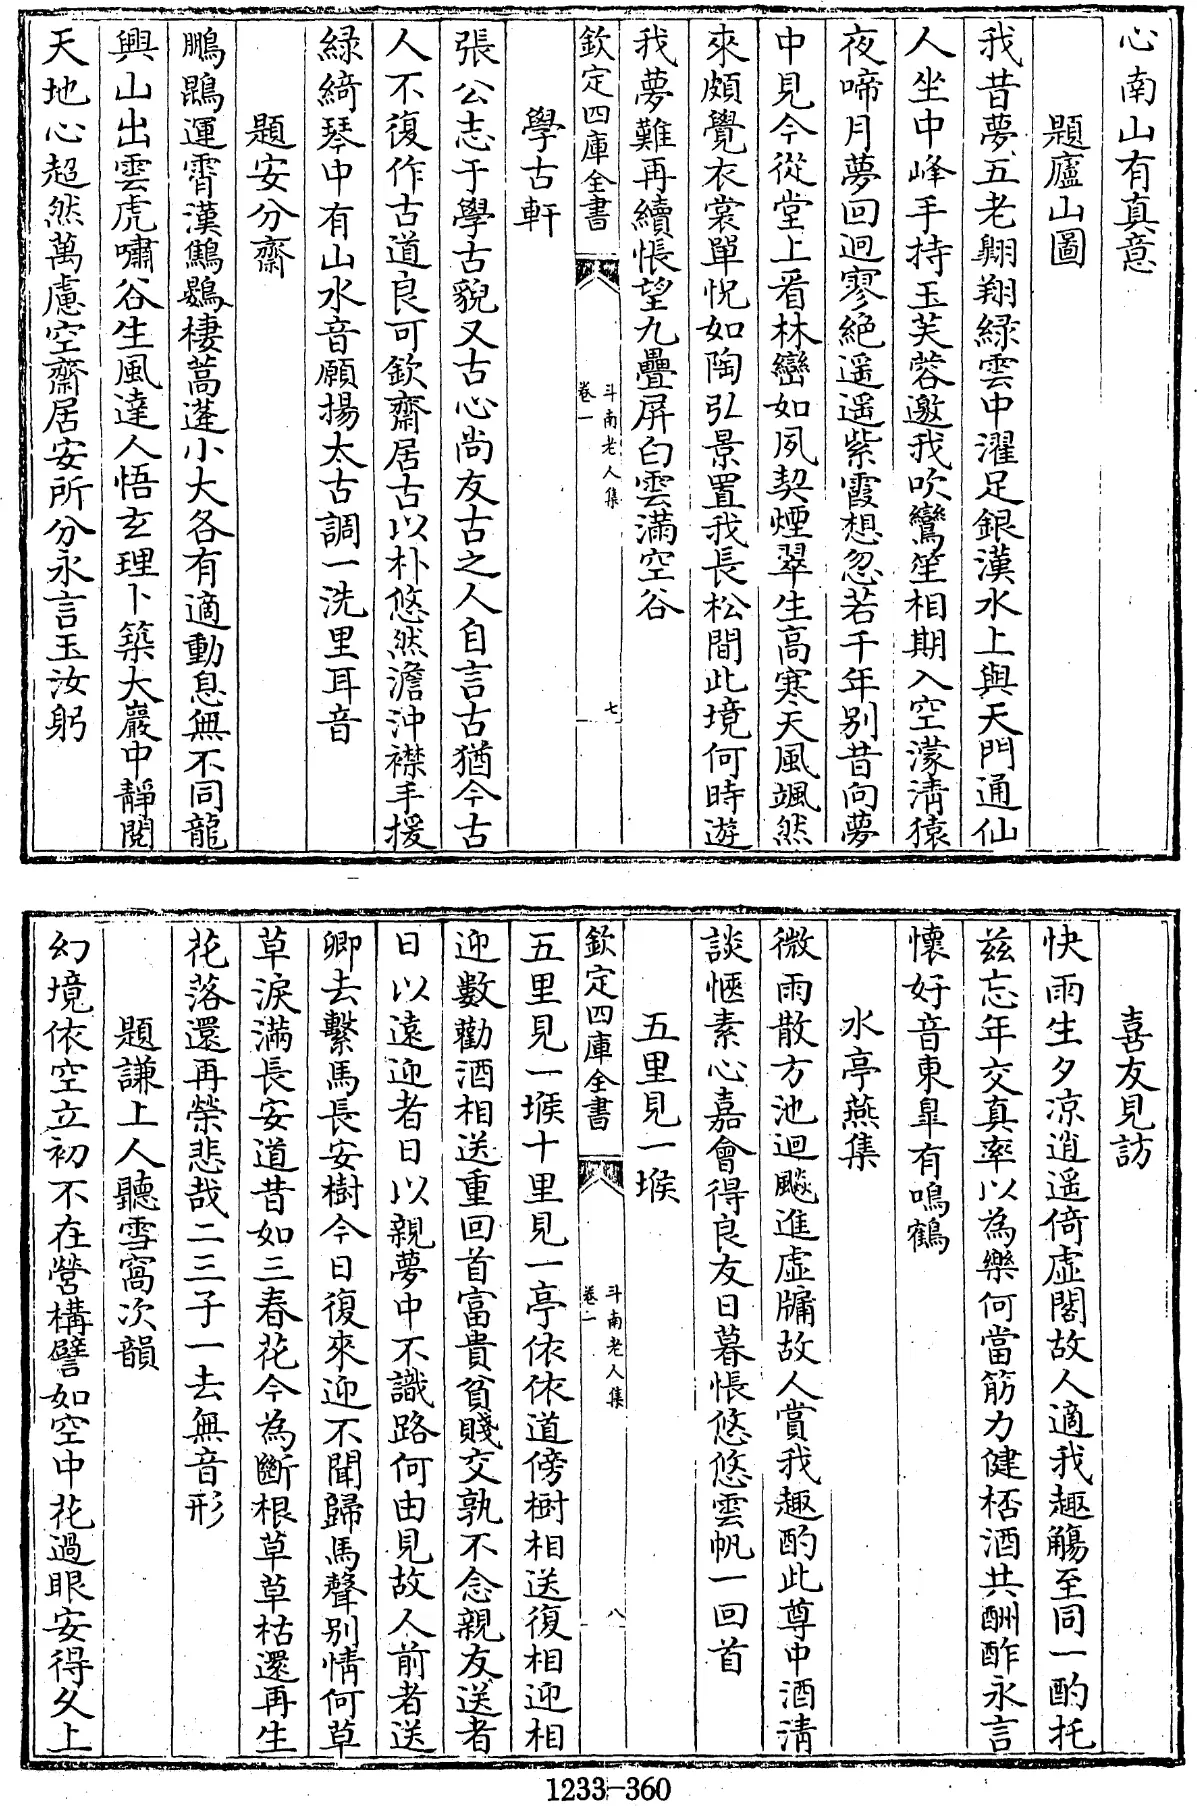 心南山有真意
題廬山圖
我昔夢五老翺翔緑雲中濯足銀漢水上與天門通仙
人坐中峰手持玉芙蓉邀我吹鸞笙相期入空濛清猿
夜啼月夢回迥寥絶遥遥紫霞想忽若千年别昔向夢
中見今從堂上看林巒如夙契煙翠生高寒天風颯然
來頗覺衣裳單怳如陶弘景置我長松間此境何時遊
我夢難再續悵望九疊屏白雲滿空谷
欽定四庫全書
斗南老人集
卷一
七
學古軒
張公志于學古貌又古心尚友古之人自言古猶今古
人不復作古道良可欽齋居古以朴悠然澹沖襟手援
緑綺琴中有山水音願揚太古調一洗里耳音
題安分齋
鵬鵾運霄漢鷦鷃棲蒿蓬小大各有適動息無不同龍
興山出雲虎嘯谷生風達人悟玄理卜築大巖中靜閲
天地心超然萬慮空齋居安所分永言玉汝躬
喜友見訪
快雨生夕凉逍遥倚虛閣故人適我趣觴至同一酌托
兹忘年交真率以為樂何當筋力健桮酒共酬酢永言
懷好音東皐有鳴鶴
水亭燕集
微雨散方池迴飈進虛牖故人賞我趣酌此尊中酒清
談愜素心嘉會得良友日暮悵悠悠雲帆一回首
五里見一堠
欽定四庫全書
斗南老人集
卷一
八
五里見一堠十里見一亭依依道傍樹相送復相迎相
迎數勸酒相送重回首富貴貧賤交孰不念親友送者
日以遠迎者日以親夢中不識路何由見故人前者送
卿去繫馬長安樹今日復來迎不聞歸馬聲别情何草
草淚滿長安道昔如三春花今為斷根草草枯還再生
花落還再榮悲哉二三子一去無音形
題謙上人聽雪窩次韻
幻境依空立初不在營構譬如空中花過眼安得久上
1233-360